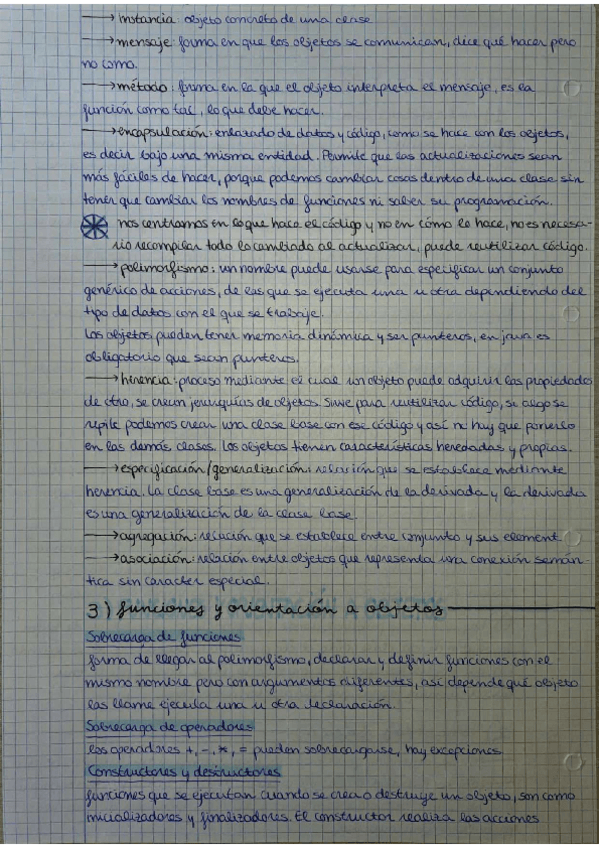 → instancia: objeto concreto de una clase
→ mensaje: forma en que los objetos se comunican, dice qué hacer pero
no como.
→ método: forma en la que el objeto interpreta el mensaje, es la
función como tal, lo que debe hacer.
→ encapsulación: enlatado de datos y código, como se hace con los objetos,
es decir bajo una misma entidad. Permite que las actualizaciones sean
más fáciles de hacer, porque podemos cambiar cosas dentro de una clase sin
tener que cambiar los nombres de funciones ni saber su programación.
nos centramos en lo que hace el código y no en cómo lo hace, no es necesa-
rio recompilar todo lo cambiado al actualizar, puede reutilizar código.
→ polimorfismo: un nombre puede usarse para especificar un conjunto
genérico de acciones, de las que se ejecuta una u otra dependiendo del
tipo de datos con el que se trabaje.
Los objetos pueden tener memoria dinámica y ser punteros, en java es
obligatorio que sean punteros.
→ herencia: proceso mediante el cual un objeto puede adquirir las propiedades
de otro, se crean jerarquías de objetos. Sirve para reutilizar código, se algo se
repite podemos crear una clase base con ese código y así no hay que ponerlo
en las demás clases. Los objetos tienen características heredadas y propias.
→ especificación/generalización: relación que se establece mediante
herencia. La clase base es una generalización de la derivada y la derivada
es una generalización de la clase base.
→ agregación: relación que se establece entre conjunto y sus element.
→ asociación: relación entre objetos que representa una conexión semán-
tica sin caracter especial.
3) funciones y orientación a objetos
Sobrecarga de funciones
forma de llegar al polimorfismo, declarar y definir funciones con el
mismo nombre pero con argumentos diferentes, así depende qué objeto
las llame ejecula una u otra declaración.
Sobrecarga de operadores
los operadores +, -, *, = pueden sobrecargarse, hay excepciones
Constructores y destructores
funciones que se ejecutan cuando se crea o destruye un objeto, son como
inicializadores y finalizadores. El constructor realiza las acciones